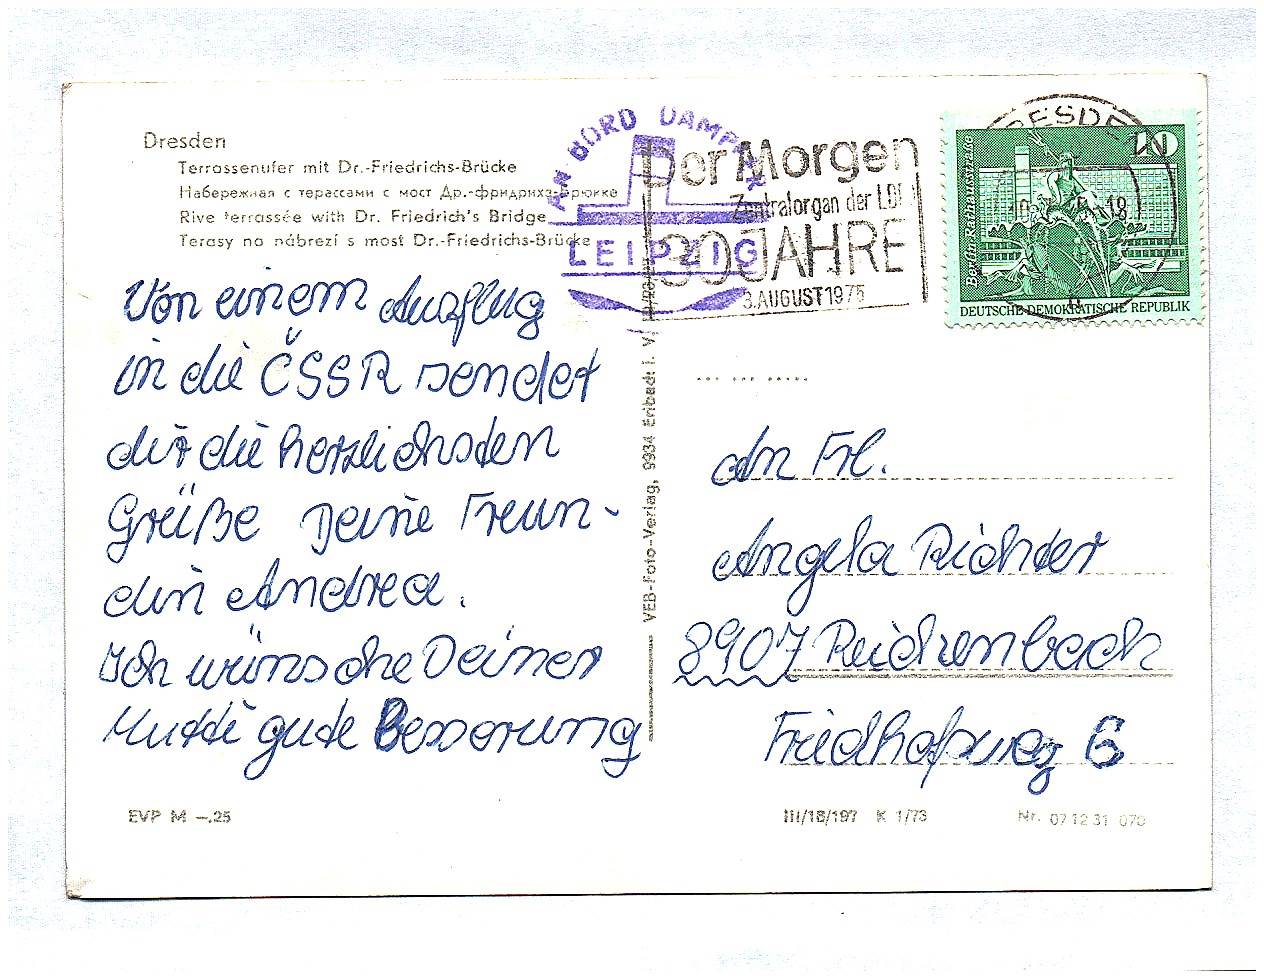 Dresden
Terrassenufer mit Dr.-Friedrichs-Brücke
Набережная с террасами с мост Др.-фридриха-Брюкке
Rive terrassée with Dr. Friedrich's Bridge
Terasy na nábrezí s most Dr.-Friedrichs-Brücke
AN BORD DAMPFER
LEIPZIG
Der Morgen
Zentralorgan der LDPD
30 JAHRE
3.AUGUST 1975
DRESDEN
18
10
Berlin-Rathauspassagen
DEUTSCHE DEMOKRATISCHE REPUBLIK
Von einem Ausflug
in die ČSSR sendet
dir die herzlichsten
Grüße Deine Freun-
din Andrea.
Ich wünsche Deiner
Mutti gute Besserung
VEB-Foto-Verlag, 9934 Erlbach i. V.
An Frl.
Angela Richter
8907 Reichenbach
Friedhofsweg 6
EVP M -.25
III/18/197 K 1/73
Nr. 07 12 31 070